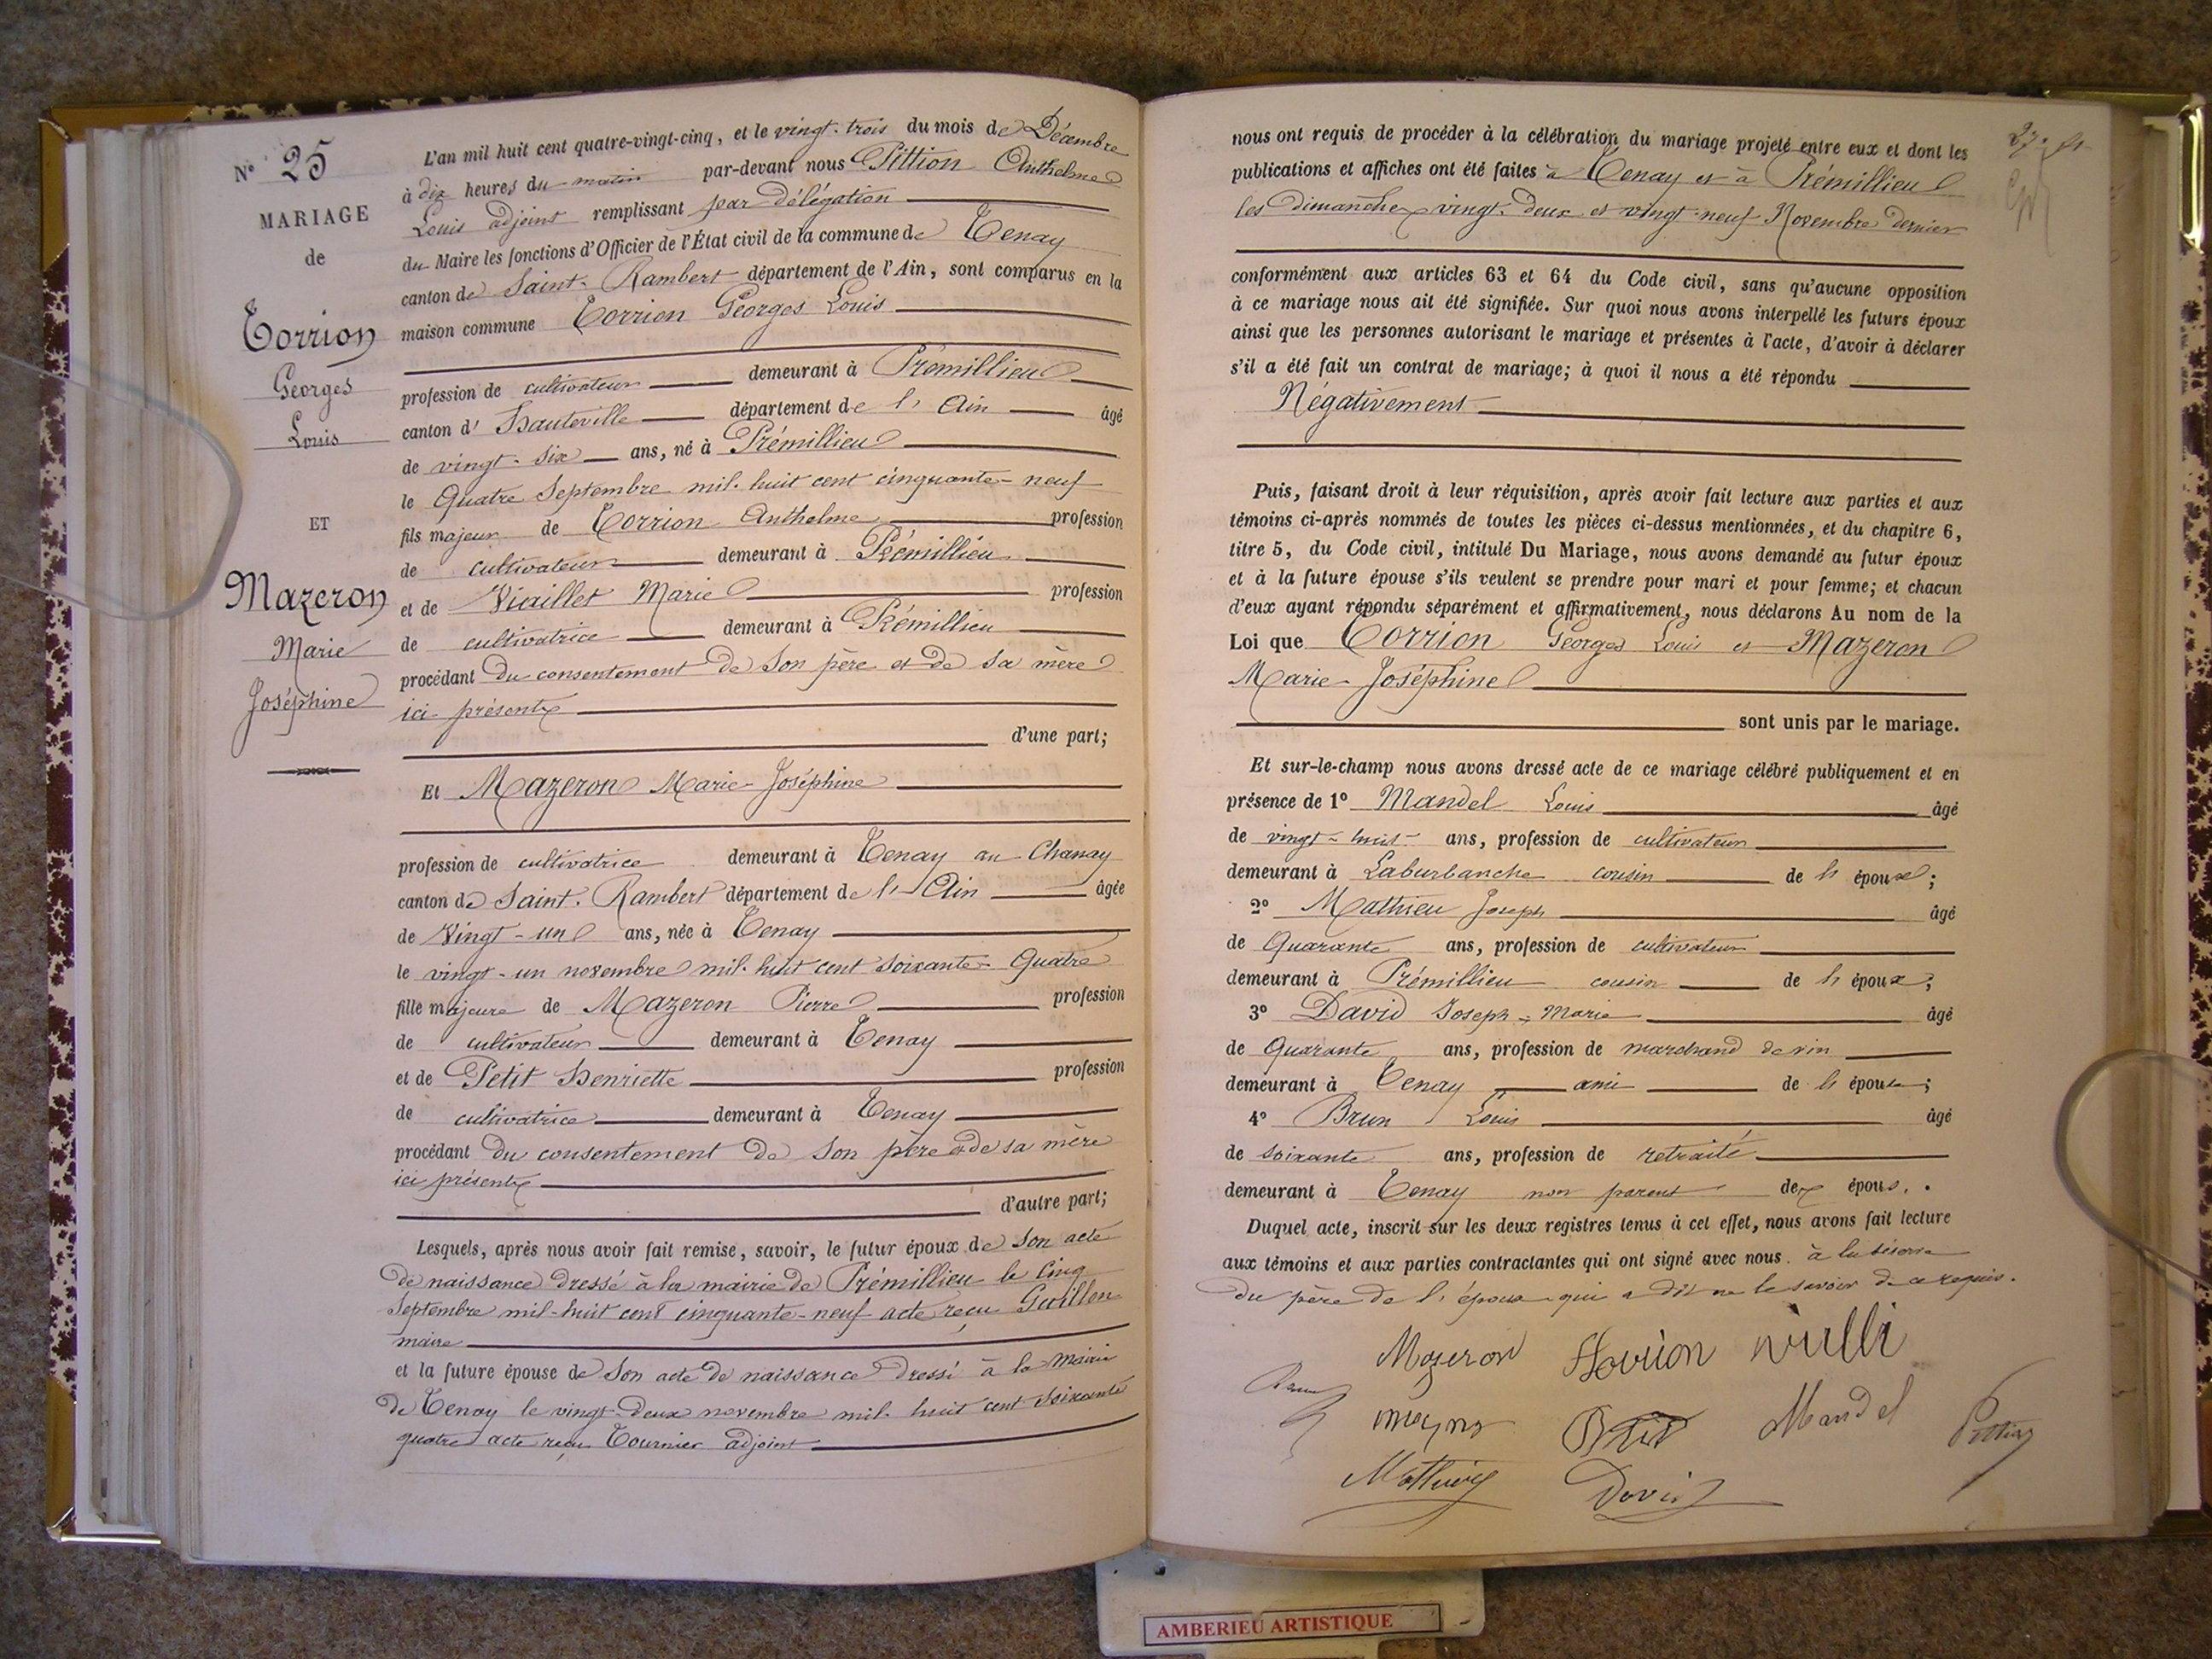 N° 25
MARIAGE
de
Torrion
Georges
Louis
ET
Mazeron
Marie
Joséphine
L'an mil huit cent quatre-vingt-cinq, et le vingt-trois du mois de Décembre
à dix heures du matin par-devant nous Pittion Anthelme
Louis adjoint remplissant par délégation
du Maire les fonctions d'Officier de l'État civil de la commune de Tenay
canton de Saint-Rambert département de l'Ain, sont comparus en la
maison commune Torrion Georges Louis
profession de cultivateur demeurant à Prémillieu
canton d'Hauteville département de l'Ain âgé
de vingt-six ans, né à Prémillieu
le Quatre Septembre mil-huit cent cinquante-neuf
fils majeur de Torrion Anthelme profession
de cultivateur demeurant à Prémillieu
et de Viaillet Marie profession
de cultivatrice demeurant à Prémillieu
procédant du consentement de son père et de sa mère
ici présents
d'une part;
Et Mazeron Marie-Joséphine
profession de cultivatrice demeurant à Tenay au Chanay
canton de Saint-Rambert département de l'Ain âgée
de Vingt-un ans, née à Tenay
le vingt-un novembre mil-huit cent soixante-Quatre
fille majeure de Mazeron Pierre profession
de cultivateur demeurant à Tenay
et de Petit Henriette profession
de cultivatrice demeurant à Tenay
procédant du consentement de son père et de sa mère
ici présents
d'autre part;
Lesquels, après nous avoir fait remise, savoir, le futur époux de son acte
de naissance dressé à la mairie de Prémillieu le Cinq
Septembre mil-huit cent cinquante-neuf acte reçu Guillon
maire
et la future épouse de son acte de naissance dressé à la mairie
de Tenay le vingt-deux novembre mil-huit cent soixante
quatre acte reçu Tournier adjoint
nous ont requis de procéder à la célébration du mariage projeté entre eux et dont les
publications et affiches ont été faites à Tenay et à Prémillieu
les dimanches vingt-deux et vingt-neuf Novembre dernier
conformément aux articles 63 et 64 du Code civil, sans qu'aucune opposition
à ce mariage nous ait été signifiée. Sur quoi nous avons interpellé les futurs époux
ainsi que les personnes autorisant le mariage et présentes à l'acte, d'avoir à déclarer
s'il a été fait un contrat de mariage; à quoi il nous a été répondu
Négativement
Puis, faisant droit à leur réquisition, après avoir fait lecture aux parties et aux
témoins ci-après nommés de toutes les pièces ci-dessus mentionnées, et du chapitre 6,
titre 5, du Code civil, intitulé Du Mariage, nous avons demandé au futur époux
et à la future épouse s'ils veulent se prendre pour mari et pour femme; et chacun
d'eux ayant répondu séparément et affirmativement, nous déclarons Au nom de la
Loi que Torrion Georges Louis et Mazeron
Marie-Joséphine
sont unis par le mariage.
Et sur-le-champ nous avons dressé acte de ce mariage célébré publiquement et en
présence de 1° Mandel Louis âgé
de vingt-huit ans, profession de cultivateur
demeurant à Laburbanche cousin de l'époux;
2° Mathieu Joseph âgé
de Quarante ans, profession de cultivateur
demeurant à Prémillieu cousin de l'époux;
3° David Joseph-Marie âgé
de Quarante ans, profession de marchand de vin
demeurant à Tenay ami de l'épouse;
4° Brun Louis âgé
de soixante ans, profession de retraité
demeurant à Tenay non parent des époux.
Duquel acte, inscrit sur les deux registres tenus à cet effet, nous avons fait lecture
aux témoins et aux parties contractantes qui ont signé avec nous. à la
du père de l'époux qui a dit ne le savoir de ce requis.
Mazeron
Brun
Mandel
Pittion
David
AMBERIEU ARTISTIQUE